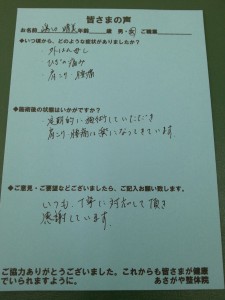 皆さまの声
お名前 年齢 歳 男・女 ご職業
◆いつ頃から、どのような症状がありましたか?
外はんぼし
ひざの痛み
肩こり・腰痛
◆施術後の状態はいかがですか?
定期的に施術していただき
肩こり腰痛は楽になってきています。
◆ご意見・ご要望などございましたら、ご記入お願い致します。
いつも、丁寧に対応して頂き
感謝しています。
ご協力ありがとうございました。これからも皆さまが健康
でいられますように。 あさがや整体院